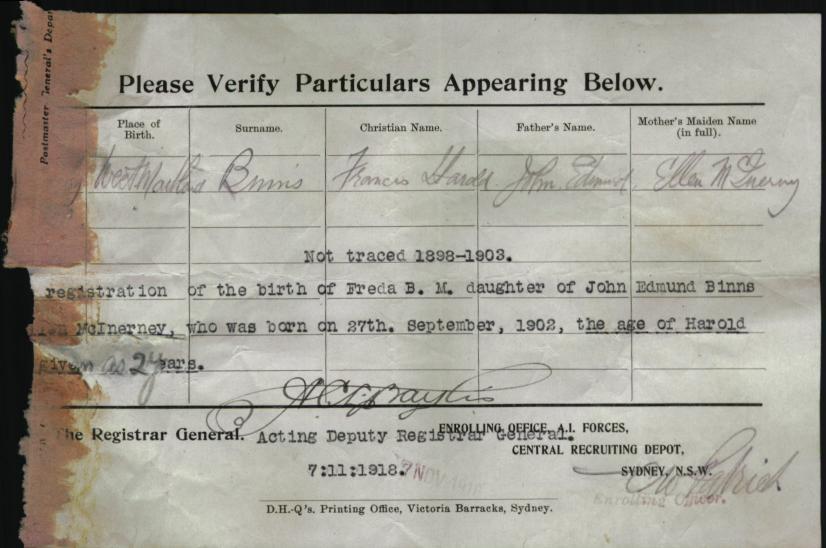 Postmaster General's Depa
Please Verify Particulars Appearing Below.
Place of Birth.
Surname.
Christian Name.
Father's Name.
Mother's Maiden Name (in full).
West Maitland Binns Francis Harold John Edmund Ellen McInerny
Not traced 1898-1903.
registration of the birth of Freda B. M. daughter of John Edmund Binns
McInerney, who was born on 27th. September, 1902, the age of Harold
given as 2 years.
The Registrar General.
Acting Deputy Registrar General.
7:11:1918.
7 NOV 1918
ENROLLING OFFICE, A.I. FORCES,
CENTRAL RECRUITING DEPOT,
SYDNEY, N.S.W.
Enrolling Officer.
D.H.-Q's. Printing Office, Victoria Barracks, Sydney.